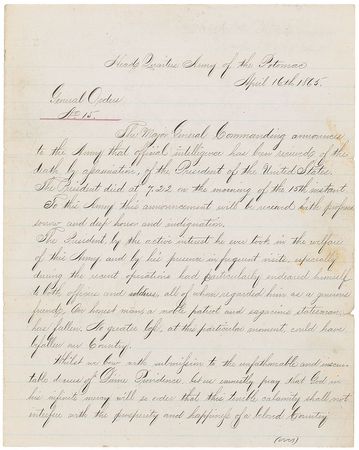 Head Quarters Army of the Potomac
April 16th 1865.
General Orders
No 15.
The Major General Commanding announces
to the Army that official intelligence has been received of the
death by assassination, of the President of the United States.
The President died at 7.22 on the morning of the 15th instant.
To this Army this announcement will be received with profound
sorrow and deep horror and indignation.
The President by the active interest he ever took in the welfare
of this Army and by his presence in frequent visits, especially
during the recent operations had particularly endeared himself
to both officers and soldiers, all of whom regarded him as a generous
friend. An honest man, a noble patriot and sagacious statesman
has fallen. No greater loss, at this particular moment, could have
befallen our Country.
Whilst we bow with submission to the unfathomable and inscru-
table decrees of Divine Providence, let us earnestly pray that God in
his infinite mercy will so order that this terrible calamity shall not
interfere with the prosperity and happiness of a beloved Country.
(over)